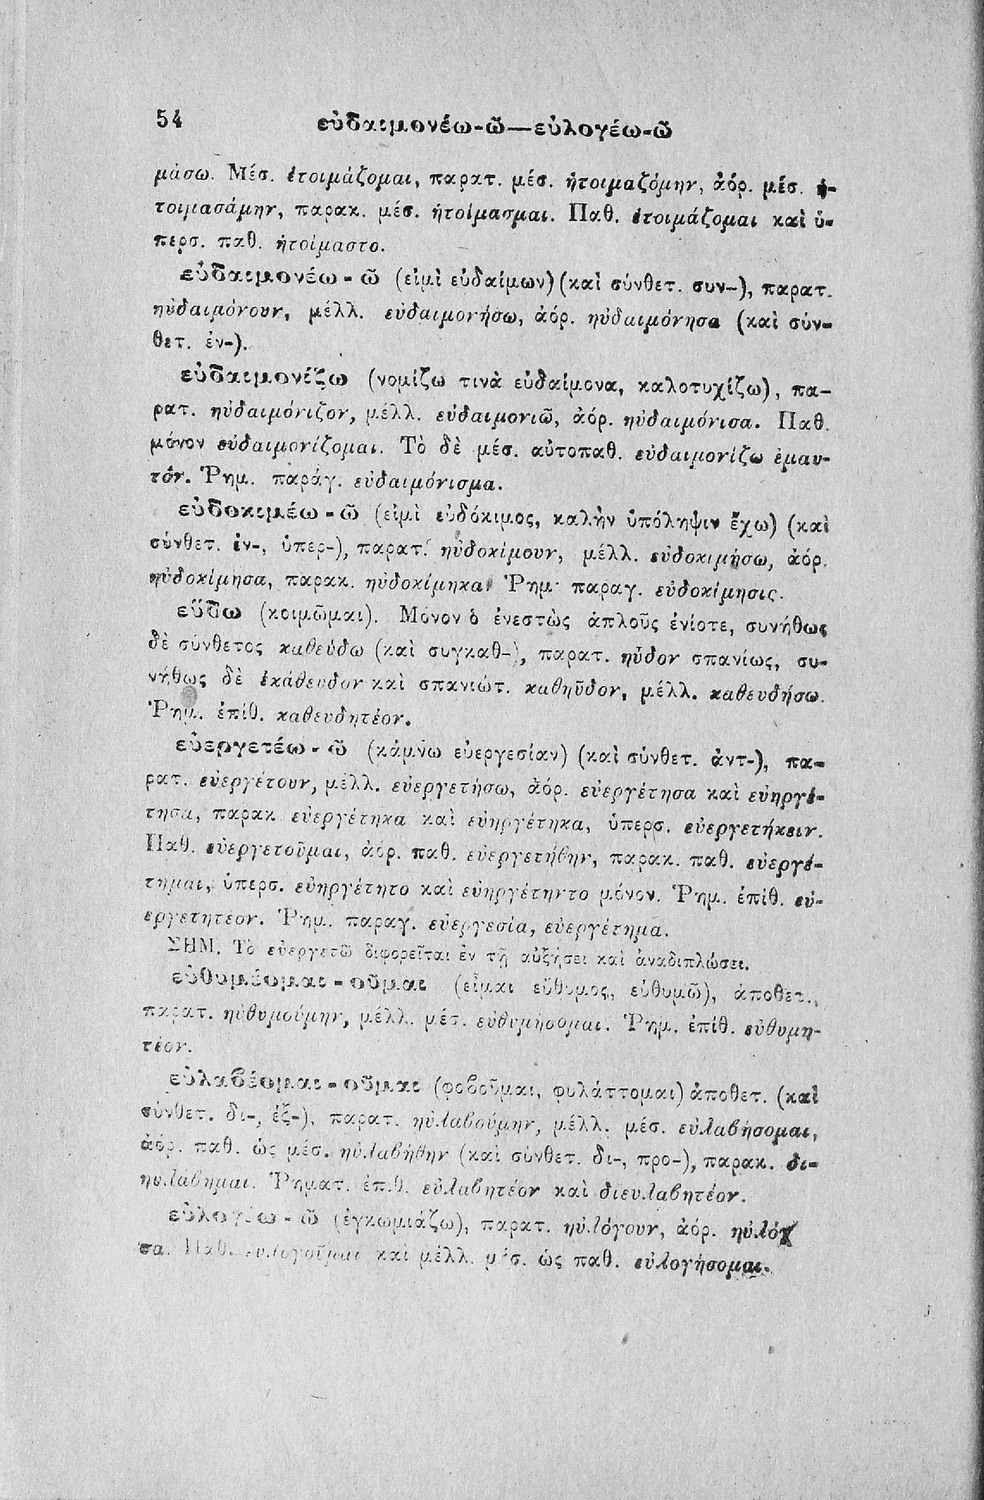 54 εὐδαιμονέω-ῶ—εὐλογέω-ῶ
μάσω. Μέσ. ἑτοιμάζομαι, παρατ. μέσ. ἡτοιμαζόμην, ἀόρ. μέσ. ἡ-
τοιμασάμην, παρακ. μέσ. ἡτοίμασμαι. Παθ. ἑτοιμάζομαι καὶ ὑ-
περσ. παθ. ἡτοίμαστο.
εὐδαιμονέω - ῶ (εἰμὶ εὐδαίμων) (καὶ σύνθετ. συν-), παρατ.
ηὐδαιμόνουν, μέλλ. εὐδαιμονήσω, ἀόρ. ηὐδαιμόνησα (καὶ σύν-
θετ. ἐν-).
εὐδαιμονίζω (νομίζω τινὰ εὐδαίμονα, καλοτυχίζω), πα-
ρατ. ηὐδαιμόνιζον, μέλλ. εὐδαιμονιῶ, ἀόρ. ηὐδαιμόνισα. Παθ.
μόνον εὐδαιμονίζομαι. Τὸ δὲ μέσ. αὐτοπαθ. εὐδαιμονίζω ἐμαυ-
τόν. Ῥημ. παράγ. εὐδαιμόνισμα.
εὐδοκιμέω - ῶ (εἰμὶ εὐδόκιμος, καλὴν ὑπόληψιν ἔχω) (καὶ
σύνθετ. ἐν-, ὑπερ-), παρατ. ηὐδοκίμουν, μέλλ. εὐδοκιμήσω, ἀόρ.
ηὐδοκίμησα, παρακ. ηὐδοκίμηκα. Ῥημ. παραγ. εὐδοκίμησις.
εὕδω (κοιμῶμαι). Μόνον ὁ ἐνεστὼς ἁπλοῦς ἐνίοτε, συνήθως
δὲ σύνθετος καθεύδω (καὶ συγκαθ-), παρατ. ηὗδον σπανίως, συ-
νήθως δὲ ἐκάθευδον καὶ σπανιώτ. καθηῦδον, μέλλ. καθευδήσω.
Ῥημ. ἐπίθ. καθευδητέον.
εὐεργετέω - ῶ (κάμνω εὐεργεσίαν) (καὶ σύνθετ. ἀντ-), πα-
ρατ. εὐεργέτουν, μέλλ. εὐεργετήσω, ἀόρ. εὐεργέτησα καὶ εὐηργέ-
τησα, παρακ. εὐεργέτηκα καὶ εὐηργέτηκα, ὑπερσ. εὐεργετήκειν.
Παθ. εὐεργετοῦμαι, ἀόρ. παθ. εὐεργετήθην, παρακ. παθ. εὐεργέ-
τημαι, ὑπερσ. εὐηργέτητο καὶ εὐηργέτηντο μόνον. Ῥημ. ἐπίθ. εὐ-
εργετητέον. Ῥημ. παραγ. εὐεργεσία, εὐεργέτημα.
ΣΗΜ. Τὸ εὐεργετῶ διφορεῖται ἐν τῇ αὐξήσει καὶ ἀναδιπλώσει.
εὐθυμέομαι - οῦμαι (εἶμαι εὔθυμος, εὐθυμῶ), ἀποθετ.,
παρατ. ηὐθυμούμην, μέλλ. μέσ. εὐθυμήσομαι. Ῥημ. ἐπίθ. εὐθυμη-
τέον.
εὐλαβέομαι - οῦμαι (φοβοῦμαι, φυλάττομαι) ἀποθετ. (καὶ
σύνθετ. δι-, ἐξ-), παρατ. ηὐλαβούμην, μέλλ. μέσ. εὐλαβήσομαι,
ἀόρ. παθ. ὡς μέσ. ηὐλαβήθην (καὶ σύνθετ. δι-, προ-), παρακ. δι-
ηυλάβημαι. Ῥηματ. ἐπίθ. εὐλαβητέον καὶ διευλαβητέον.
εὐλογέω - ῶ (ἐγκωμιάζω), παρατ. ηὐλόγουν, ἀόρ. ηὐλόγ
σα. Παθ. εὐλογοῦμαι καὶ μέλλ. μέσ. ὡς παθ. εὐλογήσομαι.